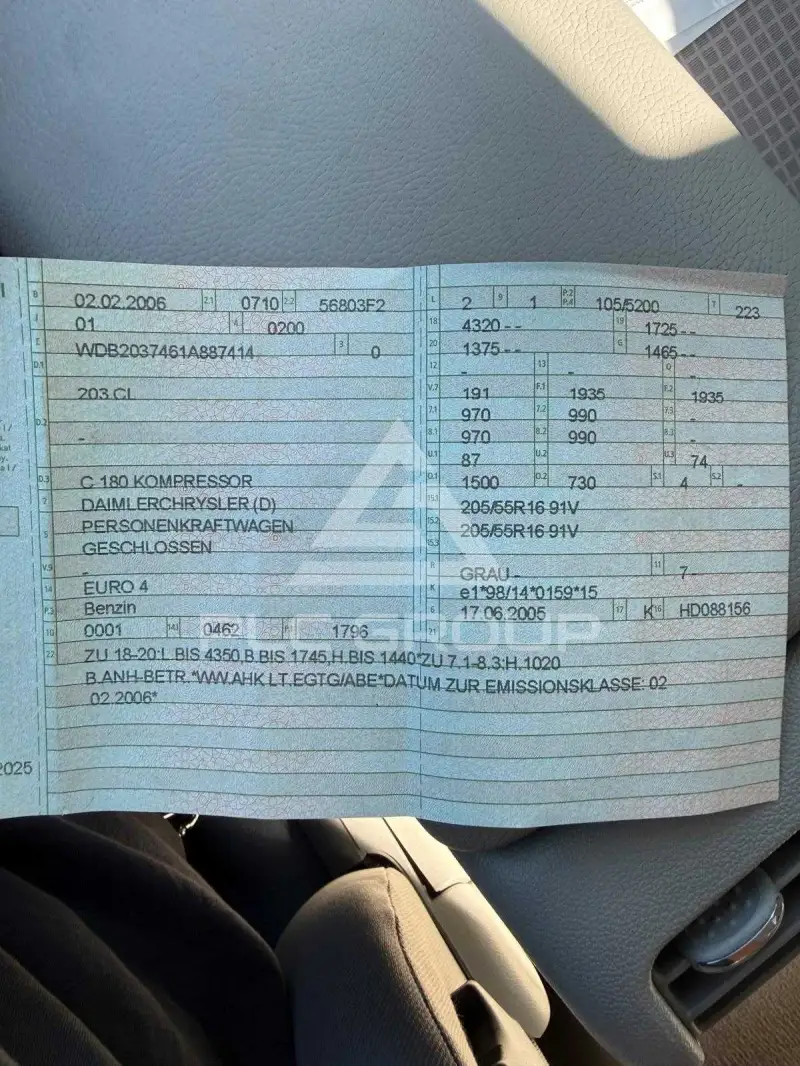 B 02.02.2006 2.1 0710 2.2 56803F2
J 01 4 0200
E WDB2037461A887414 3 0
D.1
203 CL
D.2 -
D.3 C 180 KOMPRESSOR
2 DAIMLERCHRYSLER (D)
5 PERSONENKRAFTWAGEN
GESCHLOSSEN
V.9 -
14 EURO 4
P.3 Benzin
10 0001 14.1 0462 P.1 1796
L 2 9 1 P.2 P.4 105/5200 T 223
18 4320-- 19 1725--
20 1375-- G 1465--
12 - 13 - Q -
V.7 191 F.1 1935 F.2 1935
7.1 970 7.2 990 7.3 -
8.1 970 8.2 990 8.3 -
U.1 87 U.2 U.3 74
O.1 1500 O.2 730 S.1 4 S.2 -
15.1 205/55R16 91V
15.2 205/55R16 91V
15.3
R GRAU - 11 7-
K e1*98/14*0159*15
6 17.06.2005 17 K 16 HD088156
21
22 ZU 18-20:L.BIS 4350,B.BIS 1745,H.BIS 1440*ZU 7.1-8.3:H.1020
B.ANH-BETR.*WW.AHK LT.EGTG/ABE*DATUM ZUR EMISSIONSKLASSE: 02
02.2006*
2025
GROUP